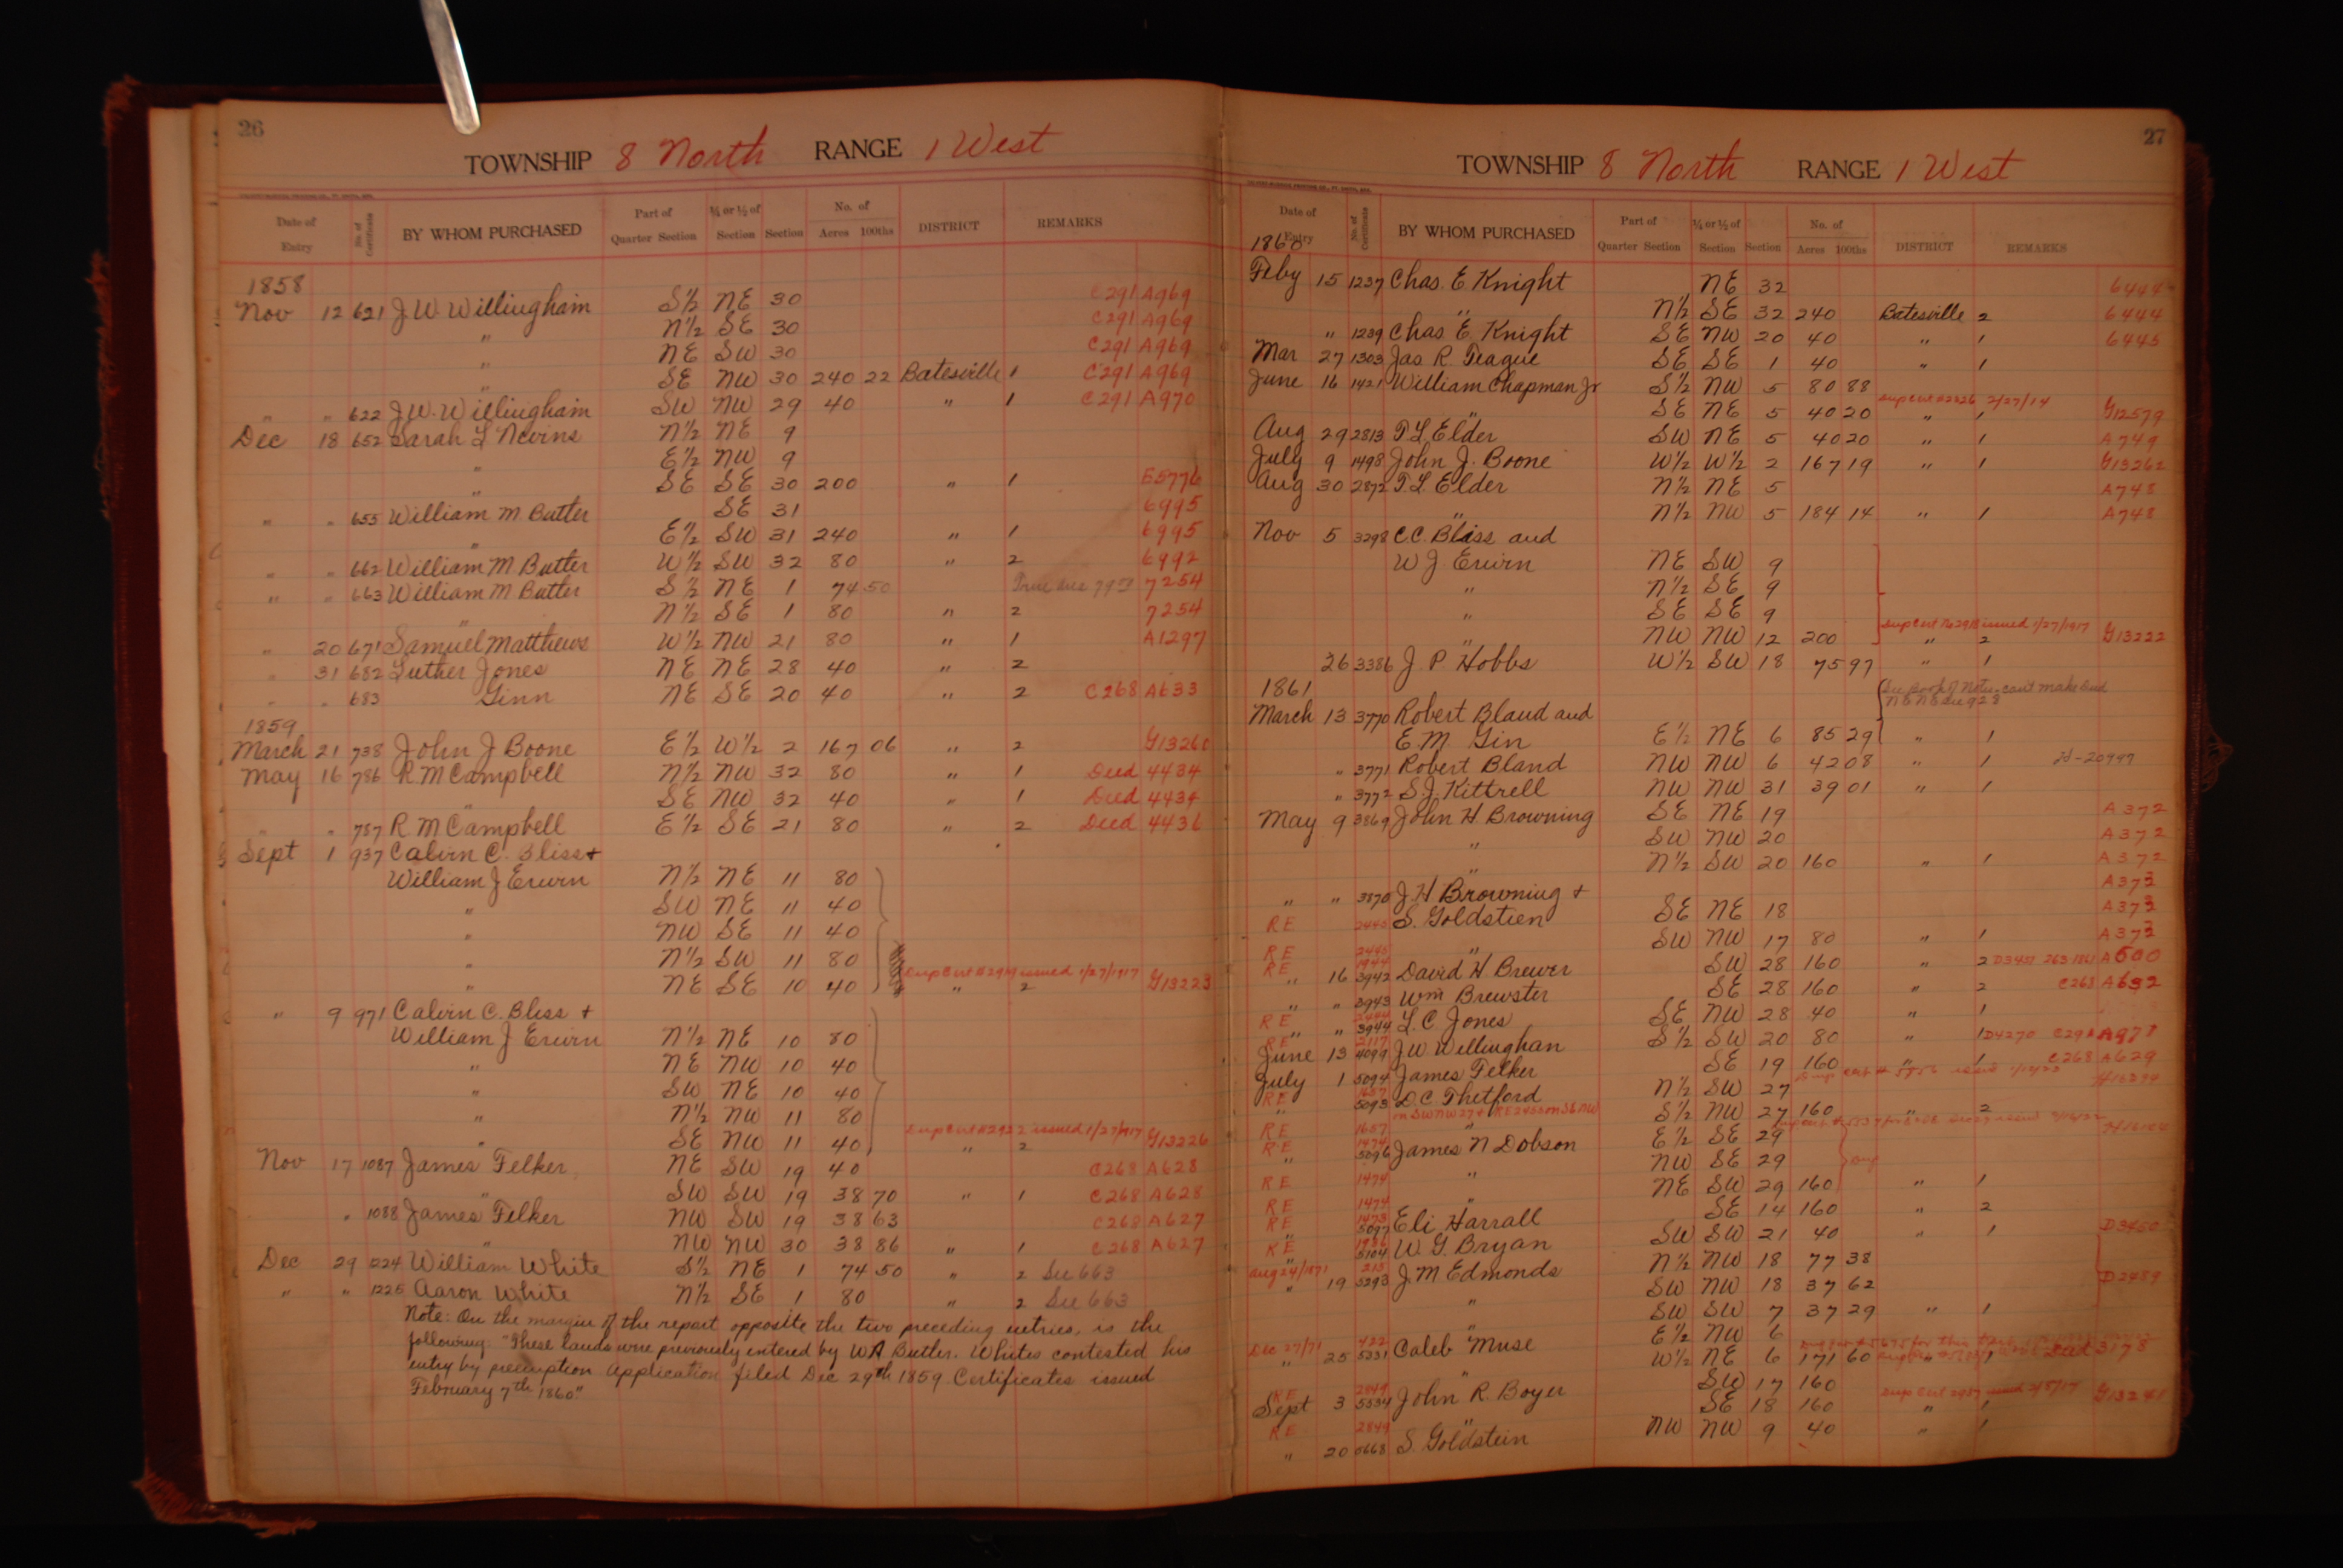 26
TOWNSHIP 8 North RANGE 1 West
Date of Entry No. of Certificate BY WHOM PURCHASED Part of Quarter Section ¼ or ½ of Section Section No. of Acres 100ths DISTRICT REMARKS
1858
Nov 12 621 J W. Willingham S½ NE 30 C291 A969
" N½ SE 30 C291 A969
" NE SW 30 C291 A969
" SE NW 30 240 22 Batesville 1 C291 A969
" " 622 J.W. Willingham SW NW 29 40 " 1 C291 A970
Dec 18 652 Sarah L Nevins N½ NE 9
" E½ NW 9
" SE SE 30 200 " 1 E5776
" " 655 William M Butler SE 31 6995
" E½ SW 31 240 " 1 6995
" " 662 William M Butler W½ SW 32 80 " 2 6992
" " 663 William M Butler S½ NE 1 74 50 7254
" N½ SE 1 80 " 2 7254
" 20 671 Samuel Matthews W½ NW 21 80 " 1 A1297
" 31 682 Luther Jones NE NE 28 40 " 2
" " 683 Ginn NE SE 20 40 " 2 C268 A633
1859
March 21 738 John J Boone E½ W½ 2 167 06 " 2 G13260
May 16 786 R M Campbell N½ NW 32 80 " 1 Deed 4434
" SE NW 32 40 " 1 Deed 4434
" " 787 R M Campbell E½ SE 21 80 " 2 Deed 4436
Sept 1 937 Calvin C. Bliss +
William J Erwin N½ NE 11 80
" SW NE 11 40
" NW SE 11 40
" N½ SW 11 80
" NE SE 10 40 Dup Cert #2919 issued 1/27/1917 " 2 G13223
" 9 971 Calvin C. Bliss +
William J Erwin N½ NE 10 80
" NE NW 10 40
" SW NE 10 40
" N½ NW 11 80
" SE NW 11 40 Dup Cert #2922 issued 1/27/1917 " 2 G13226
Nov 17 1087 James Felker NE SW 19 40 C268 A628
" SW SW 19 38 70 " 1 C268 A628
" 1088 James Felker NW SW 19 38 63 C268 A627
" NW NW 30 38 86 " 1 C268 A627
Dec 29 1224 William White S½ NE 1 74 50 " 2 See 663
" " 1225 Aaron White N½ SE 1 80 " 2 See 663
Note: On the margin of the report opposite the two preceding entries, is the
following: "These lands were previously entered by W A Butler. Whites contested his
entry by preemption application filed Dec 29th 1859 Certificates issued
February 7th 1860."
27
TOWNSHIP 8 North RANGE 1 West
Date of Entry No. of Certificate BY WHOM PURCHASED Part of Quarter Section ¼ or ½ of Section Section No. of Acres 100ths DISTRICT REMARKS
1860
Feby 15 1237 Chas. E Knight NE 32 6444
" N½ SE 32 240 Batesville 2 6444
" 1239 Chas E Knight SE NW 20 40 " 1 6445
Mar 27 1303 Jas R. Teague SE SE 1 40 " 1
June 16 1421 William Chapman Jr S½ NW 5 80 88
" SE NE 5 40 20 Dup Cert #2326 2/27/14 " 1 G12579
Aug 29 2813 T L Elder SW NE 5 40 20 " 1 A749
July 9 1498 John J. Boone W½ W½ 2 167 19 " 1 G13262
Aug 30 2872 T L Elder N½ NE 5 A748
" N½ NW 5 184 14 " 1 A748
Nov 5 3298 C C Bliss and
W J Erwin NE SW 9
" N½ SE 9
" SE SE 9
" NW NW 12 200 Dup Cert No 2918 issued 1/27/1917 " 2 G13222
26 3386 J. P. Hobbs W½ SW 18 75 97 " 1
1861 See Book of Notes can't make Deed
March 13 3770 Robert Bland and
E. M. Gin E½ NE 6 85 29 " 1
" 3771 Robert Bland NW NW 6 42 08 " 1
" 3772 S. J. Kittrell NW NW 31 39 01 " 1
May 9 3869 John H Browning SE NE 19 A372
" SW NW 20 A372
" N½ SW 20 160 " 1 A372
" " 3870 J H Browning + A373
RE 2445 S. Goldstien SE NE 18 A373
RE 2445 " SW NW 17 80 " 1 A373
RE 1944 " 16 3942 David H Brewer SW 28 160 " 2 A600
" " 3943 Wm Brewster SE 28 160 " 2 C268 A632
RE " " 3944 L. C Jones SE NW 28 40 " 1
RE 2117 June 13 4099 J W Willinghan S½ SW 20 80 " 1 D4270
July 1 5094 James Felker SE 19 160 " 1 C268 A629
RE 1657 " 5093 D C Thetford N½ SW 27
RE 1657 " S½ NW 27 160 " 2
RE 1474 " 5096 James N Dobson E½ SE 29
RE 1474 " NW SE 29
RE 1474 " NE SW 29 160 " 1
RE 1473 " 5097 Eli Harrall SE 14 160 " 2
RE 1986 " 5104 W. G. Bryan SW SW 21 40 " 1 D3450
Aug 24/1871 215 " 19 5293 J. M Edmonds N½ NW 18 77 38
" SW NW 18 37 62 D2489
" SW SW 7 37 29 " 1
Dec 27/71 422 " 25 5331 Caleb Muse E½ NW 6
" W½ NE 6 171 60 " 1 Deed 3178
RE 2849 Sept 3 5534 John R. Boyer SW 17 160
RE 2849 " SE 18 160 Dup Cert 2987 issued " 1 G13241
" 20 5668 S. Goldstein NW NW 9 40 " 1